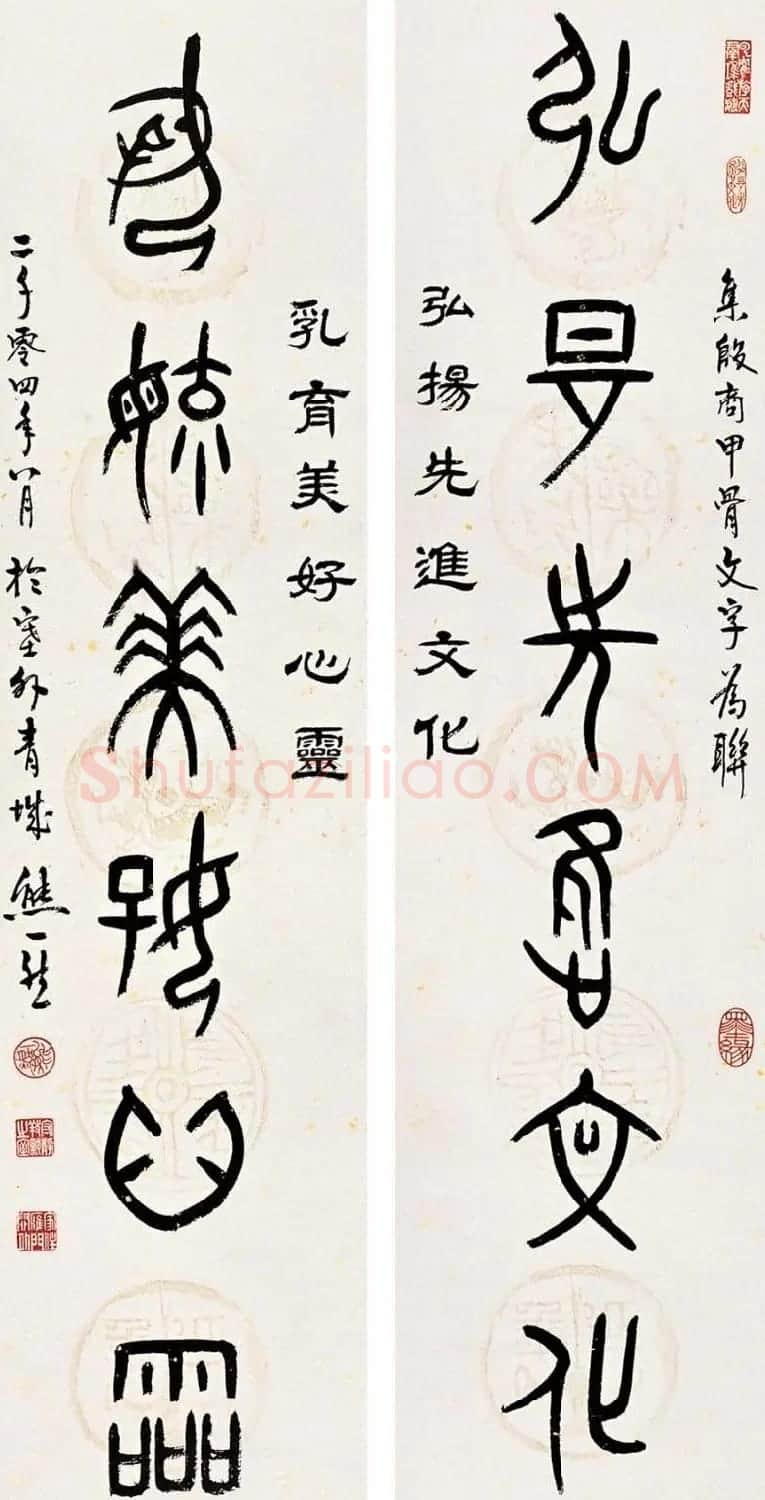 集殷商甲骨文字為聯
弘昜先進文化
弘揚先進文化
乳育美好心靈
乳毓美好心霝
二千零四年八月於塞外青城熊一然
Shufaziliao.COM